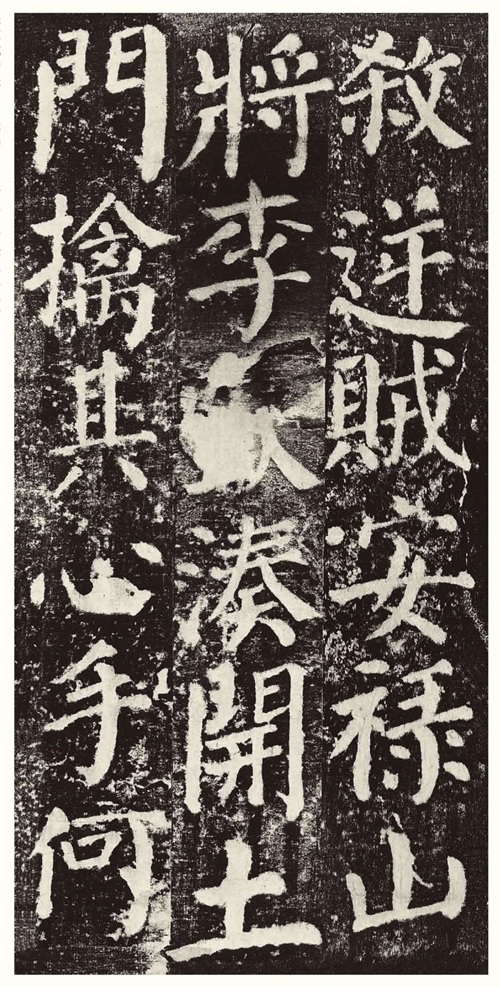 殺逆賊安祿山
將李湊開土
門擒其心手何